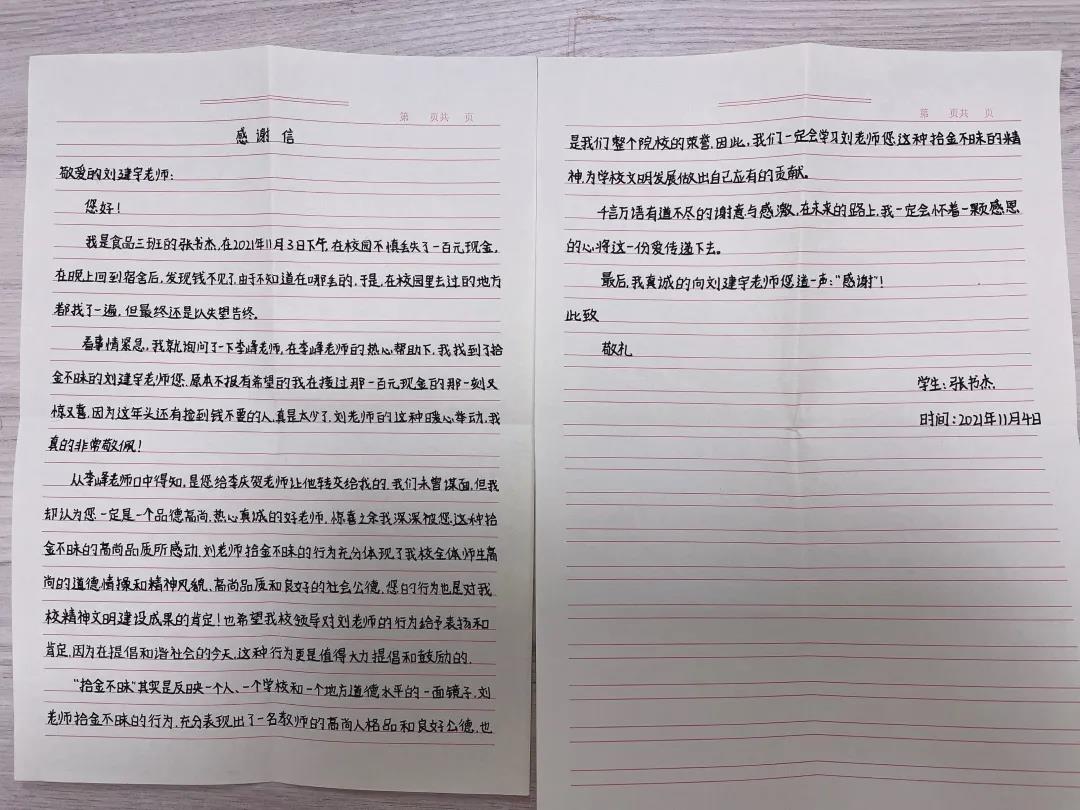 第 页共 页
感谢信
敬爱的刘建宇老师：
您好！
我是食品三班的张书杰，在2021年11月3日下午，在校园不慎丢失了一百元现金，
在晚上回到宿舍后，发现钱不见了，由于不知道在哪丢的，于是，在校园里去过的地方
都找了一遍，但最终还是以失望告终。
看事情紧急，我就询问了一下李峰老师，在李峰老师的热心帮助下，我找到了拾
金不昧的刘建宇老师您，原本不报有希望的我在接过那一百元现金的那一刻又
惊又喜，因为这年头还有捡到钱不要的人，真是太少了，刘老师的这种暖心举动，我
真的非常敬佩！
从李峰老师口中得知，是您给李庆贺老师让他转交给我的，我们未曾谋面，但我
却认为您一定是一个品德高尚，热心真诚的好老师，惊喜之余我深深被您这种拾
金不昧的高尚品质所感动，刘老师拾金不昧的行为充分体现了我校全体师生高
尚的道德情操和精神风貌、高尚品质和良好的社会公德，您的行为也是对我
校精神文明建设成果的肯定！也希望我校领导对刘老师的行为给予表扬和
肯定，因为在提倡和谐社会的今天，这种行为更是值得大力提倡和鼓励的，
“拾金不昧”其实是反映一个人、一个学校和一个地方道德水平的一面镜子，刘
老师拾金不昧的行为，充分表现出了一名教师的高尚人格品和良好公德，也
第 页共 页
是我们整个院校的荣誉，因此，我们一定会学习刘老师您这种拾金不昧的精
神，为学校文明发展做出自己应有的贡献。
千言万语有道不尽的谢意与感激，在未来的路上，我一定会怀着一颗感恩
的心，将这一份爱传递下去。
最后，我真诚的向刘建宇老师您道一声：“感谢”！
此致
敬礼
学生：张书杰
时间：2021年11月4日